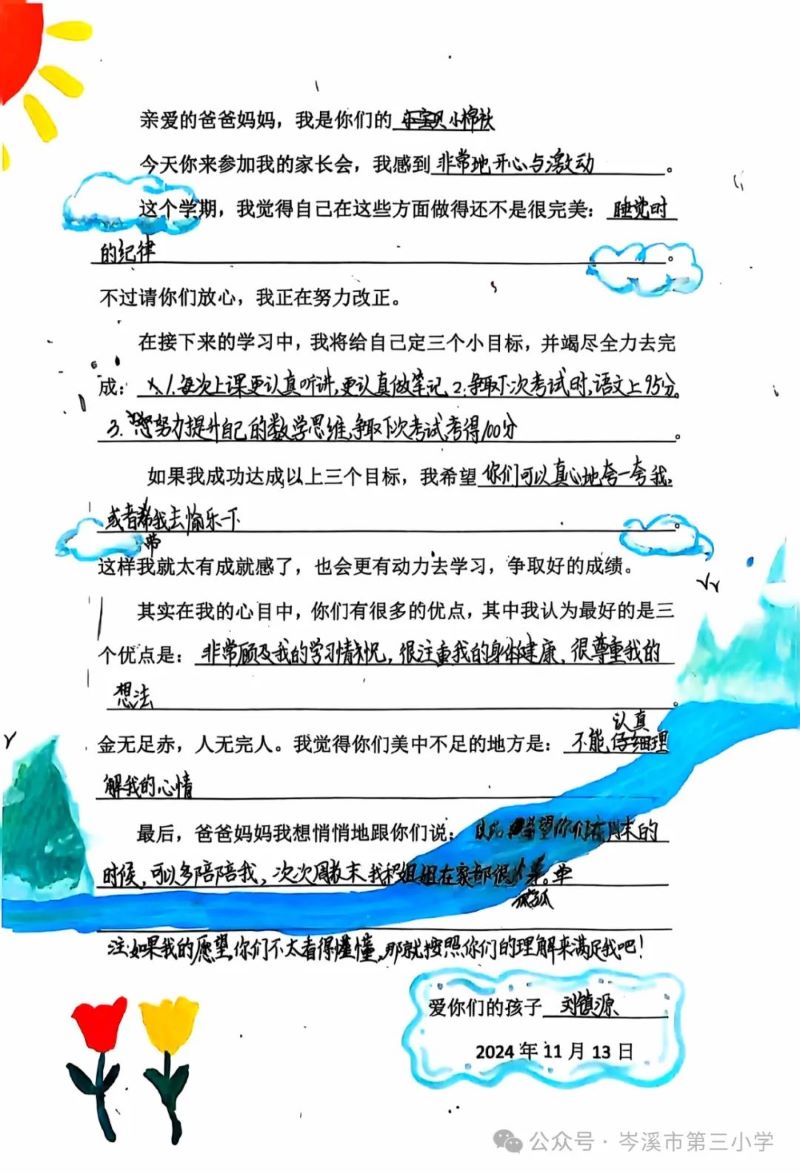 亲爱的爸爸妈妈，我是你们的 小棉袄
今天你来参加我的家长会，我感到 非常地开心与激动 。
这个学期，我觉得自己在这些方面做得还不是很完美： 睡觉时
的纪律 。
不过请你们放心，我正在努力改正。
在接下来的学习中，我将给自己定三个小目标，并竭尽全力去完
成： 1.每次上课更认真听讲,更认真做笔记 2.争取下次考试时,语文上95分。
3.努力提升自己的数学思维,争取下次考试,考得100分 。
如果我成功达成以上三个目标，我希望 你们可以真心地夸一夸我,
或者带我去愉乐一下 。
这样我就太有成就感了，也会更有动力去学习，争取好的成绩。
其实在我的心目中，你们有很多的优点，其中我认为最好的是三
个优点是： 非常顾及我的学习情况，很注重我的身体健康，很尊重我的
想法 。
金无足赤，人无完人。我觉得你们美中不足的地方是： 不能认真理
解我的心情
最后，爸爸妈妈我想悄悄地跟你们说： 希望你们在周末的
时候，可以多陪陪我，次次周末我和姐姐在家都很孤单。
注:如果我的愿望,你们不太看得懂,那就按照你们的理解来满足我吧!
爱你们的孩子 刘镇源
2024 年 11 月 13 日
公众号 · 岑溪市第三小学